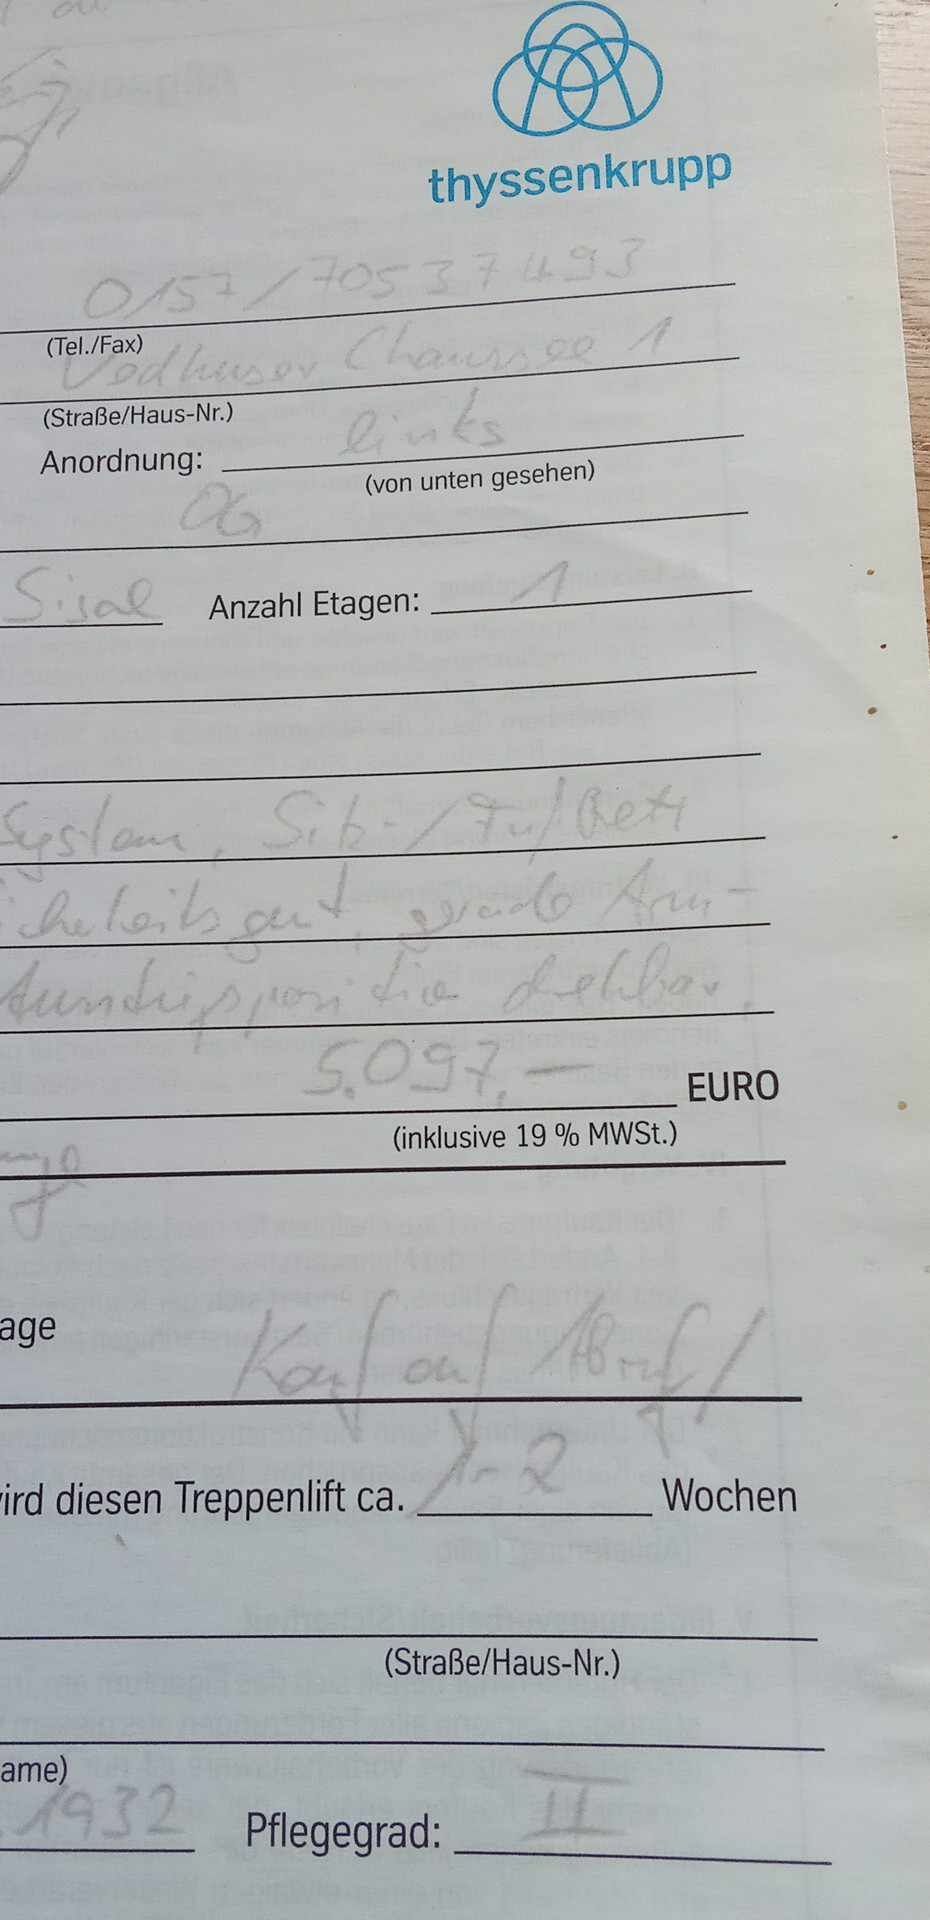 thyssenkrupp
0157/70537493
(Tel./Fax)
Chaussee 1
(Straße/Haus-Nr.)
Anordnung: links
(von unten gesehen)
OG
Sisal Anzahl Etagen: 1
System, Sitz-/Fußbett
icherheitsgurt, gerade Arm-
drehbar,
5.097,— EURO
(inklusive 19 % MWSt.)
age
Kauf auf Abruf!
wird diesen Treppenlift ca. 1-2 Wochen
(Straße/Haus-Nr.)
ame)
1932 Pflegegrad: II